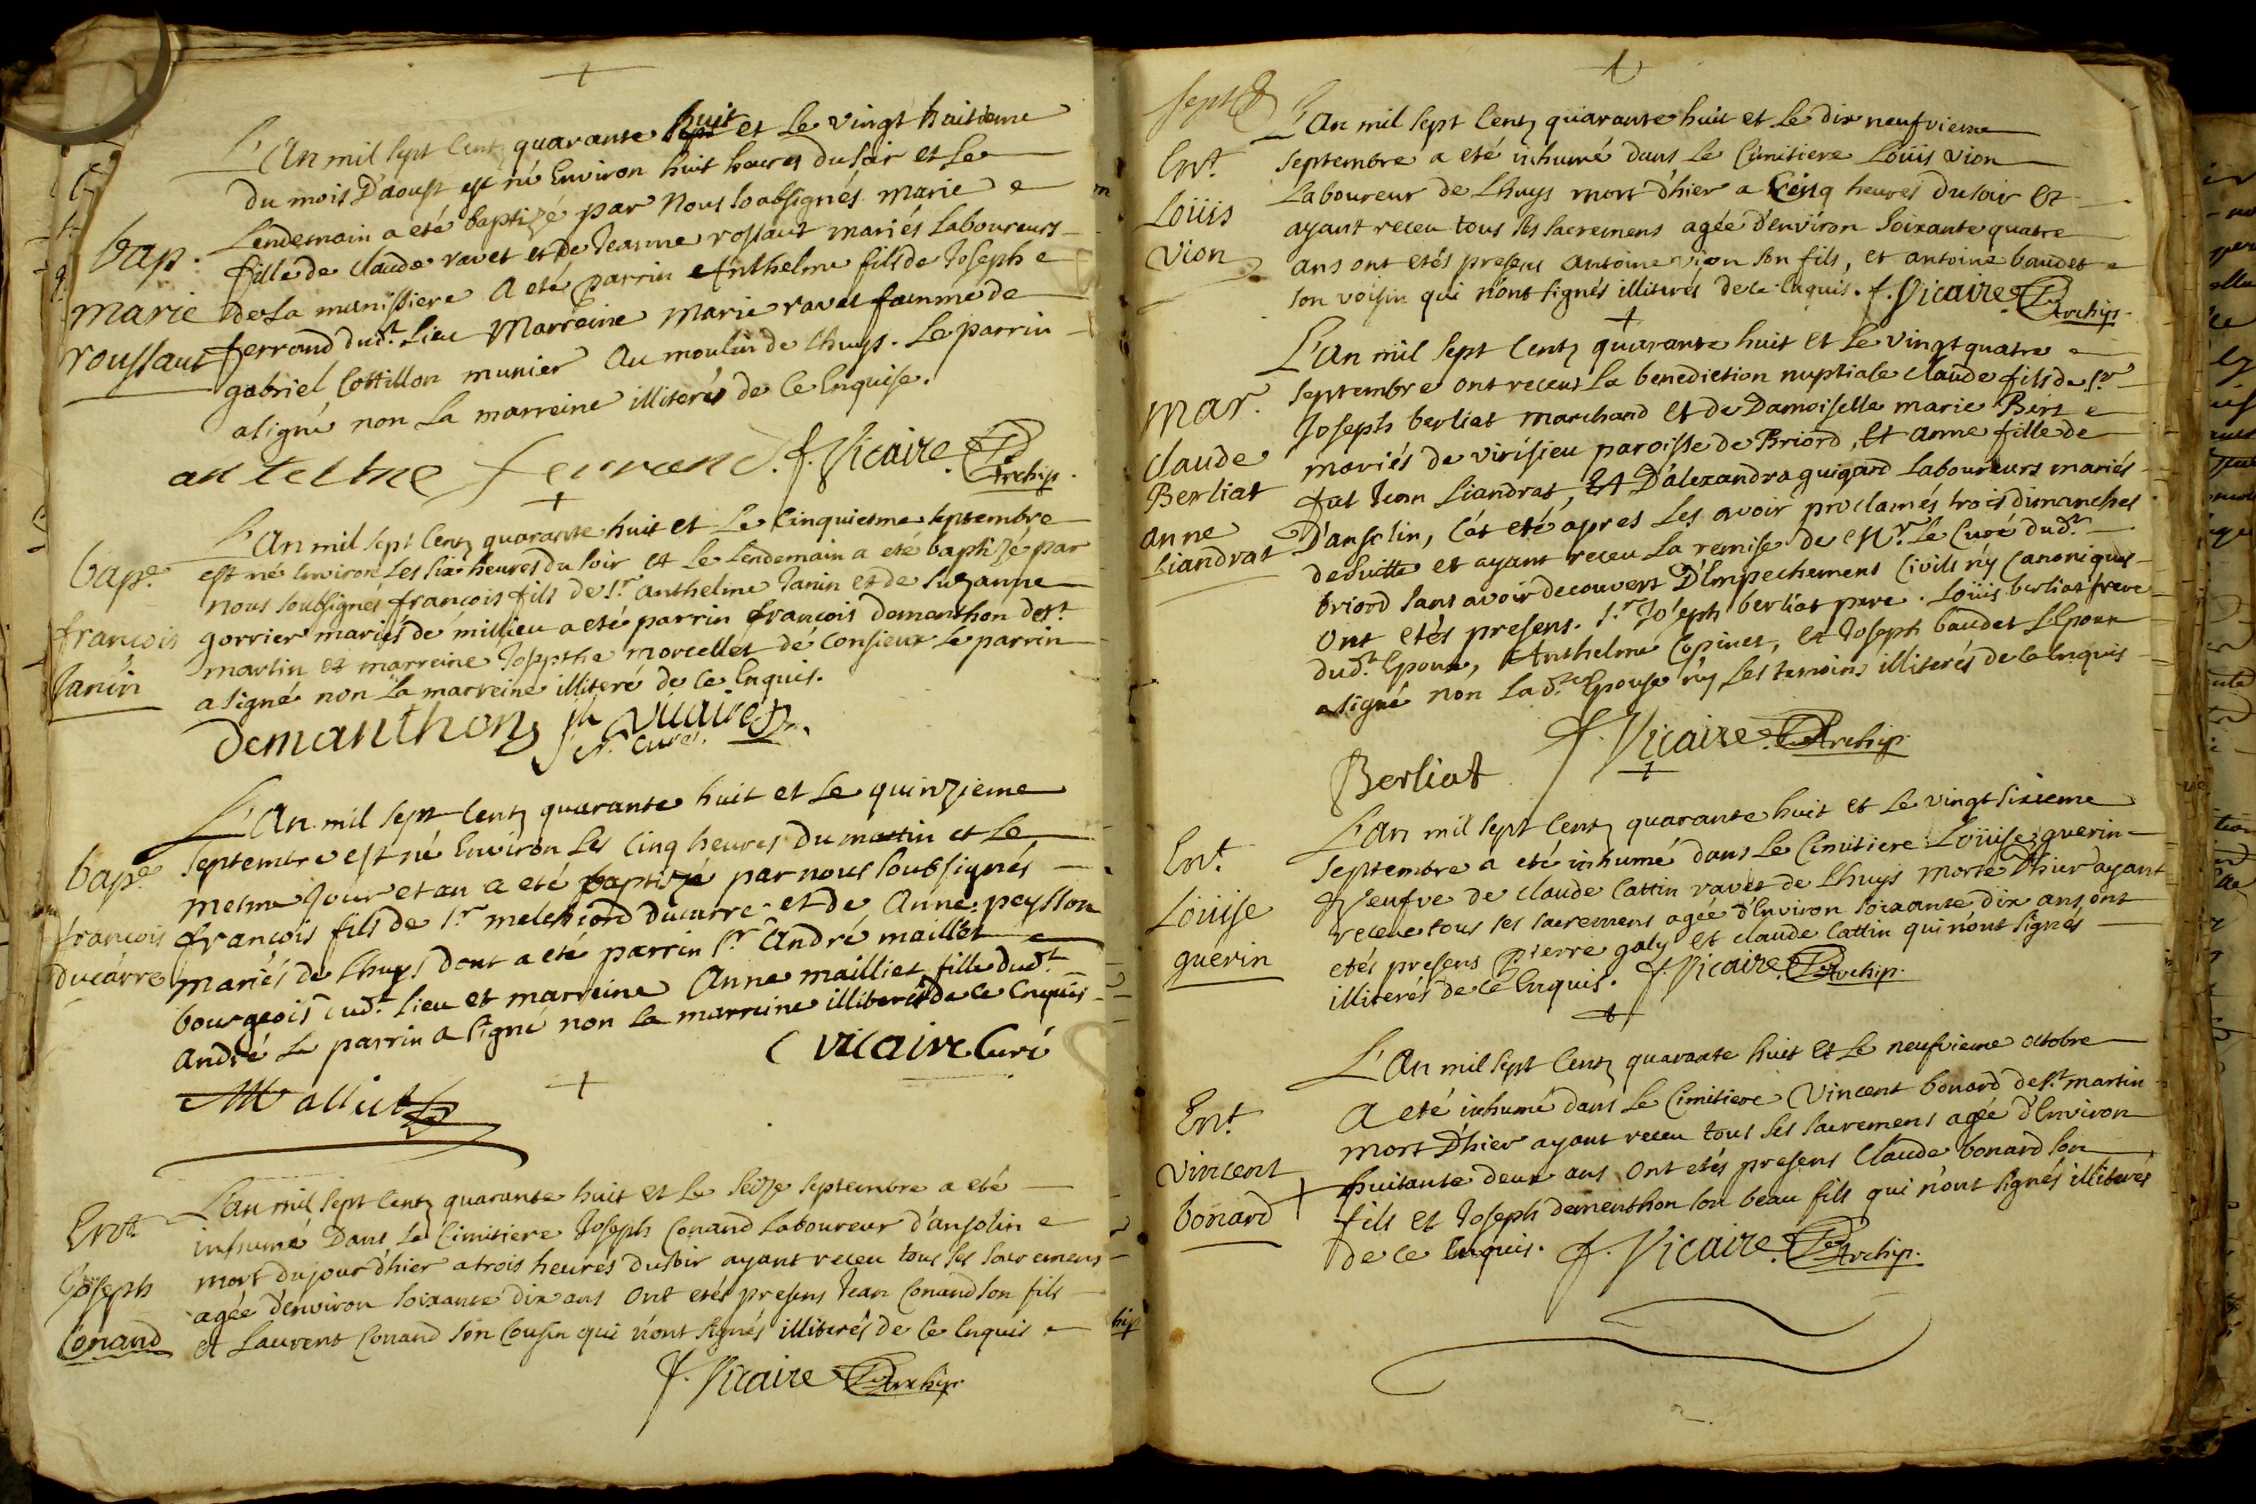 L'An mil sept Centz quarante huit et Le vingt huitieme
du mois D'aoust est né Environ huit heures du soir et Le
Lendemain a eté baptizé par Nous soubsignés marie
bap.
marie
roussaut
fille de Claude ravet et de Jeanne rossaut mariés Laboureurs
de La manissiere A eté parrin Anthelme fils de Joseph
ferrand dud.t Lieu Marreine Marie ravet famme de
gabriel Cottillon munier Au moulin de Lhuys. Le parrin
a signé non La marreine illiterés de Ce Enquise.
antelme ferrand. f. Vicaire Archip.
L'An mil sept Centz quarante huit et Le Cinquiesme septembre
est né Environ Les six heures du soir et Le Lendemain a eté baptizé par
nous soubsignes françois fils de S.r anthelme Janin et de Suzanne
bap.e
françois
Janin
gorrier mariés de millieu a eté parrin françois demanthon de s.t
martin et marreine Josepthe morcellet de Consieux Le parrin
a signé non La marreine illiteré de Ce Enquis.
Demanthon vicaire
Curé
L'An mil sept Centz quarante huit et Le quinzieme
septembre est né Environ Les Cinq heures du mattin et Le
mesme Jour et an a eté baptizé par nous soubsignés
bap.e
françois
ducarre
françois fils de S.r melchiord ducarre et de Anne peysson
mariés de Lhuys dont a eté parrin S.r André maillet
bourgeois dud.t Lieu et marreine Anne mailliet fille dud.t
André Le parrin a signé non La marreine illiterés de Ce Enquis
C vicaire Curé
Malliet
L'an mil sept Centz quarante huit et Le seize septembre a eté
Ent.
Joseph
Conand
inhumé Dans Le Cimitiere Joseph Conand Laboureur d'ansolin
mort du jour d'hier a trois heures du soir ayant receu tous ses sacremens
agée d'environ soixante dix ans Ont etés presens Jean Conand son fils
et Laurent Conand son Cousin qui n'ont signés illiterés de Ce Enquis
f. Vicaire Archip.
sept
L'An mil sept Centz quarante huit et Le dix neufvieme
Ent.
Loüis
vion
septembre a eté inhumé dans Le Cimitiere Loüis vion
Laboureur de Lhuys mort d'hier a Cinq heures du soir Et
ayant receu tous ses sacremens agée d'environ soixante quatre
ans ont etés presens antoine vion son fils, et antoine baudet
son voisin qui n'ont signés illiterés de Ce Enquis. f. Vicaire Archip.
L'An mil sept Centz quarante huit et Le vingt quatre
Mar.
Claude
Berliat
anne
Liandrat
septembre ont receus La benediction nuptiale Claude fils de S.r
Joseph berliat marchand et de Damoiselle marie Bert
mariés de virisieu paroisse de Briord, Et anne fille de
fut Jean Liandrat, Et D'alexandra guigard Laboureurs mariés
D'ansolin, C'at eté apres Les avoir proclamés trois dimanches
de suitte et ayant receu La remise de M.r Le Curé dud.t
briord sans avoir decouvert D'Empechemens Civils ny Canoniques
Ont etés presens. S.r Joseph berliat pere. Loüis berliat frere
dud.t Epoux, Anthelme Copinet, et Joseph baudet L'Epoux
a signé non La d.te Epouse ny Les temoins illiterés de Ce Enquis
f. Vicaire Archip.
Berliat
L'An mil sept Centz quarante huit et Le vingt sixieme
Ent.
Loüise
guerin
septembre a eté inhumé dans Le Cimitiere Loüise guerin
Veufve de Claude Cattin ravet de Lhuys morte D'hier ayant
receue tous ses sacremens agée d'Environ soixante dix ans ont
etés presens pierre galy et Claude Cattin qui n'ont signés
illiterés de Ce Enquis. f. Vicaire Archip.
L'An mil sept Centz quarante huit et Le neufvieme octobre
Ent.
Vincent
bonard
A eté inhumé dans Le Cimitiere Vincent bonard de s.t martin
mort D'hier ayant receu tous ses sacremens agée d'Environ
huitante deux ans Ont etés presens Claude bonard son
fils et Joseph dementhon son beau fils qui n'ont signés illiterés
de Ce Enquis. f. Vicaire Archip.